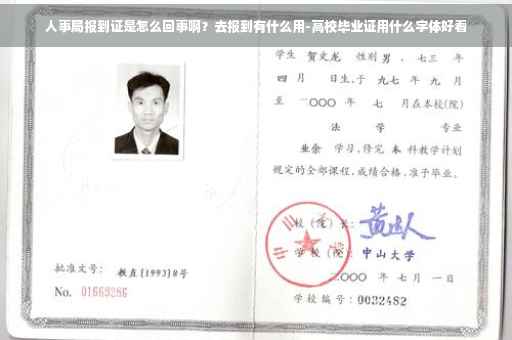 人事局报到证是怎么回事啊？去报到有什么用-高校毕业证用什么字体好看
学生 贺文龙 性别 男 、七三 年
四 月 日生,于 九七 年 九 月
至 二〇〇〇 年 七 月在本校(院)
法 学 专业
业余 学习,修完 本 科教学计划
规定的全部课程,成绩合格,准予毕业。
校 (院) 长:
学 校 (院): 中山大学
二〇〇〇 年 七 月 一 日
学校编号: 0032482
批准文号: 教直[1993]8号
No. 01669286